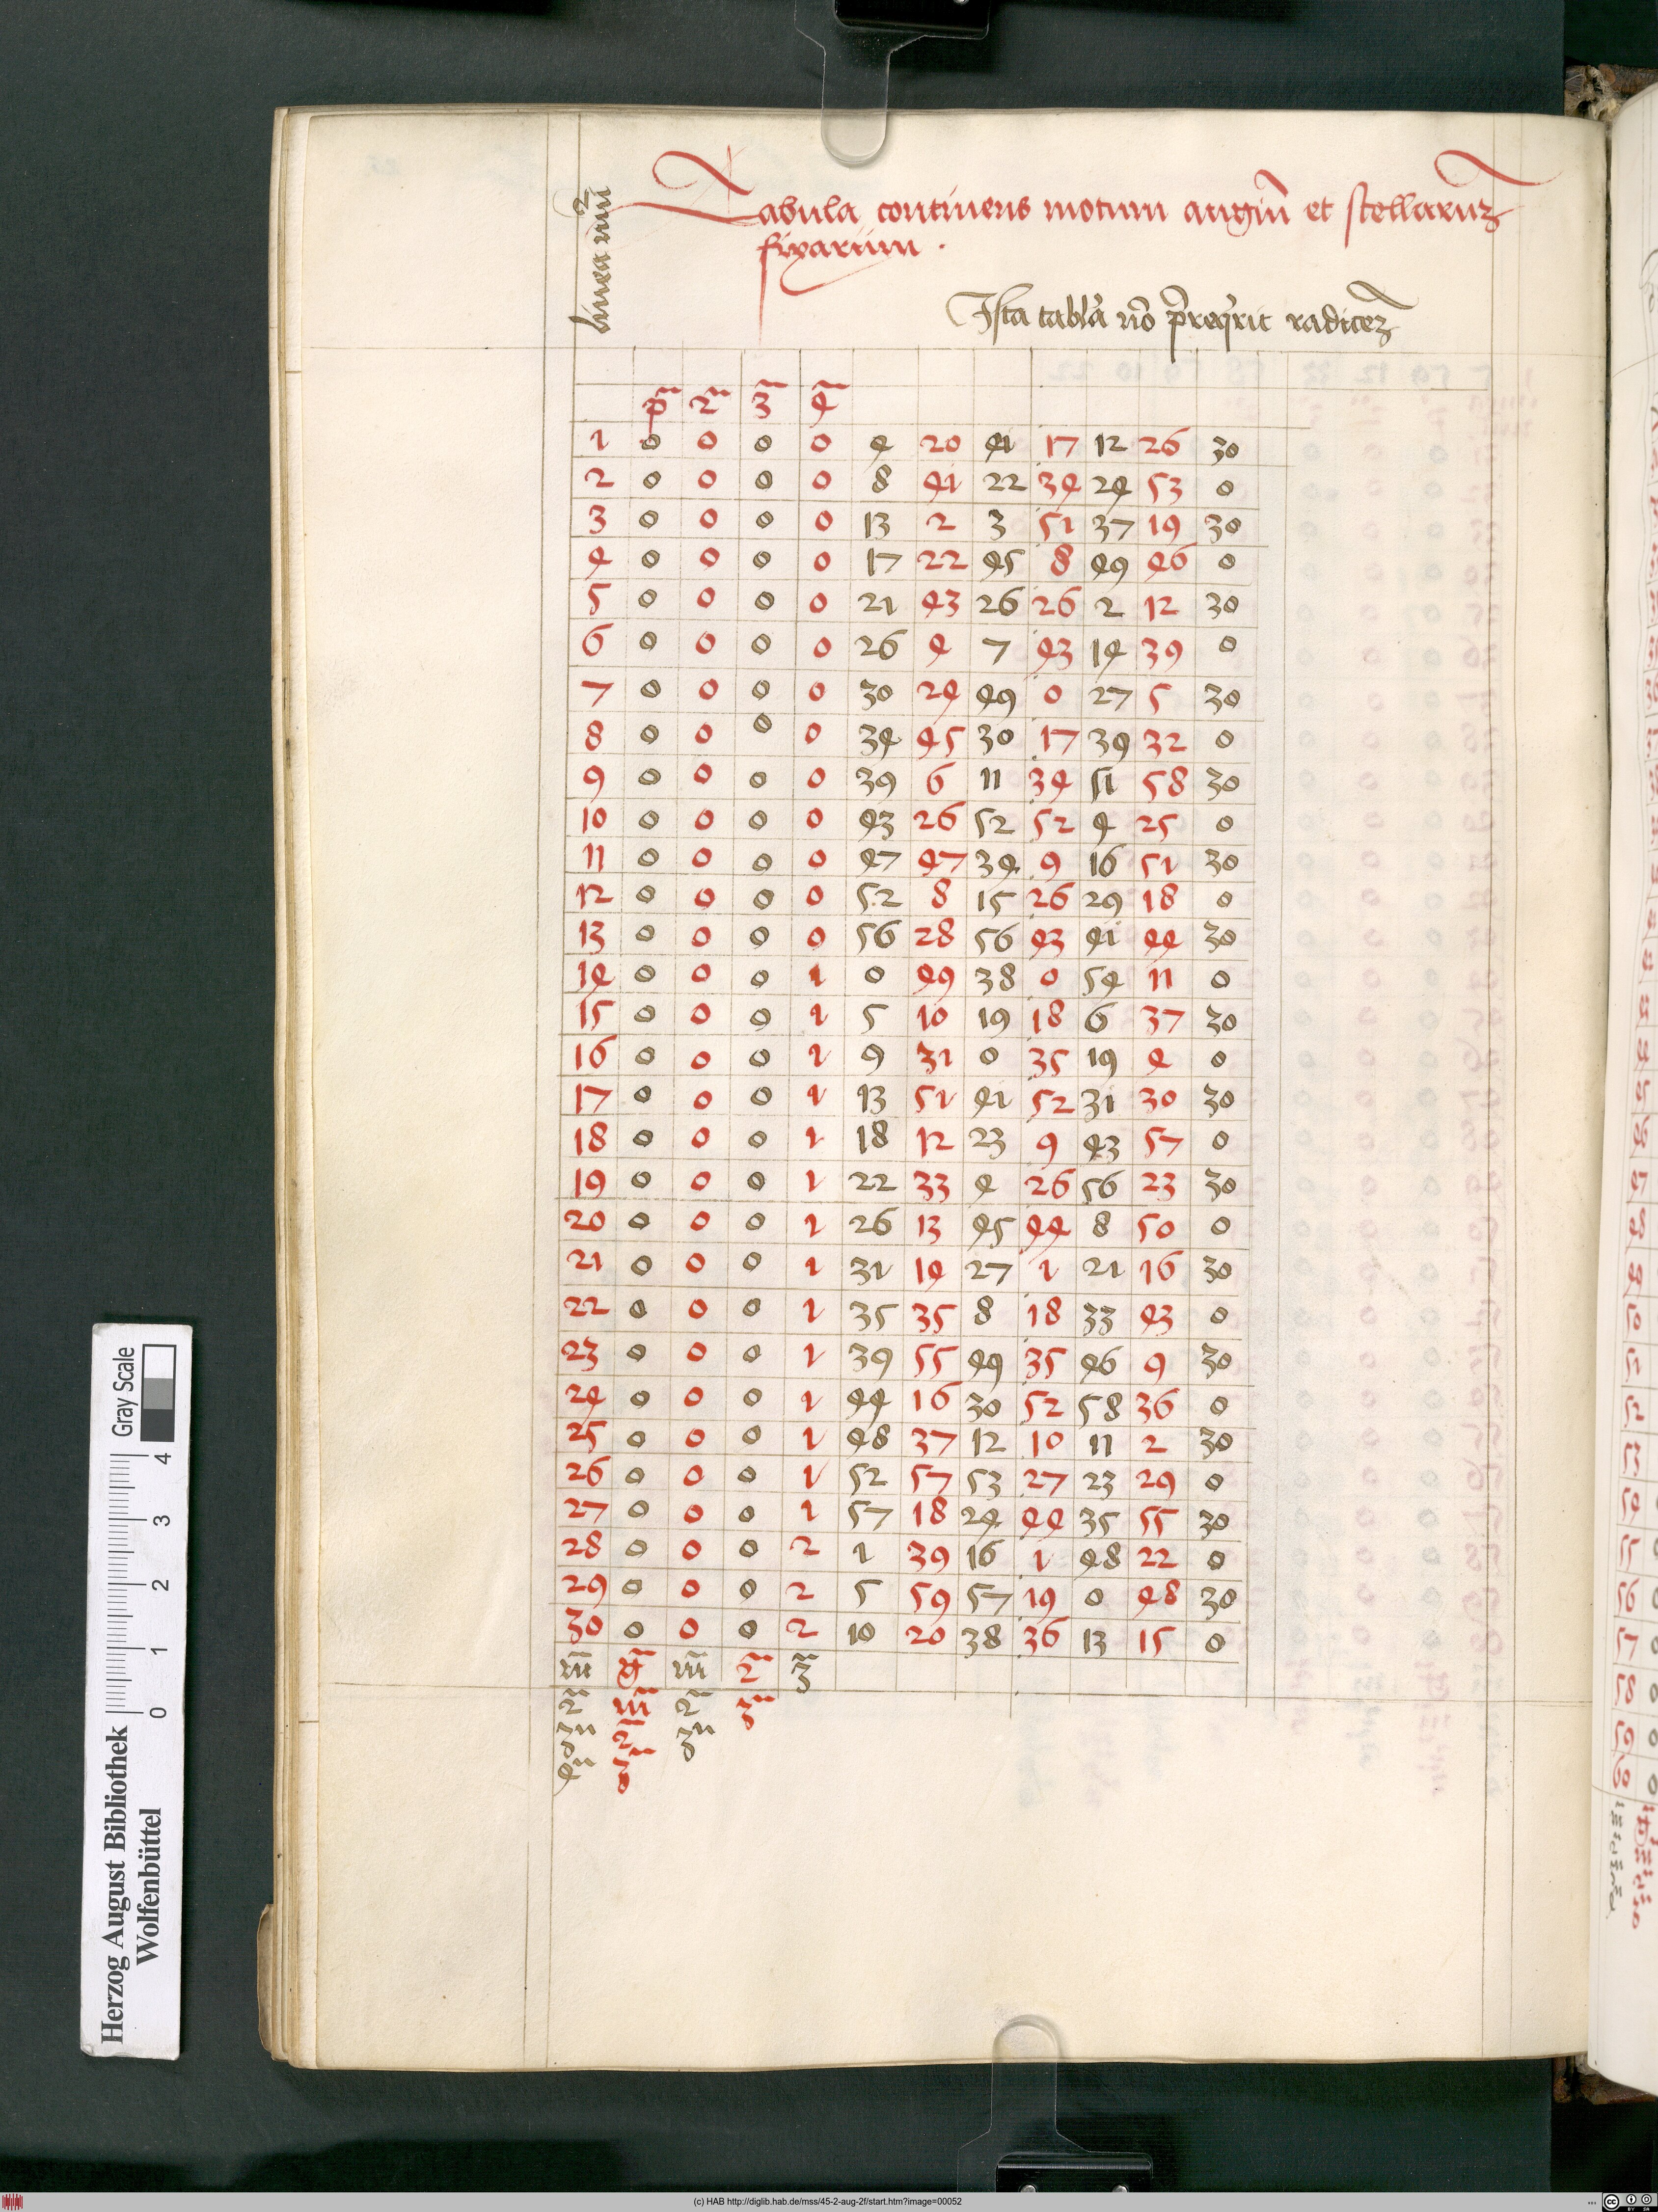 linea nūi
Tabula continens motum augiū et stellaruꝫ
fixarum ·
Ista tabl'a nō p̄req'rit radiceꝫ
p̄ 2 3 4
1 0 0 0 0 4 20 41 17 12 26 30
2 0 0 0 0 8 41 22 34 24 53 0
3 0 0 0 0 13 2 3 51 37 19 30
4 0 0 0 0 17 22 45 8 49 46 0
5 0 0 0 0 21 43 26 26 2 12 30
6 0 0 0 0 26 4 7 43 14 39 0
7 0 0 0 0 30 24 49 0 27 5 30
8 0 0 0 0 34 45 30 17 39 32 0
9 0 0 0 0 39 6 11 34 51 58 30
10 0 0 0 0 43 26 52 52 4 25 0
11 0 0 0 0 47 47 34 9 16 51 30
12 0 0 0 0 52 8 15 26 29 18 0
13 0 0 0 0 56 28 56 43 41 44 30
14 0 0 0 1 0 49 38 0 54 11 0
15 0 0 0 1 5 10 19 18 6 37 30
16 0 0 0 1 9 31 0 35 19 4 0
17 0 0 0 1 13 51 41 52 31 30 30
18 0 0 0 1 18 12 23 9 43 57 0
19 0 0 0 1 22 33 4 26 56 23 30
20 0 0 0 1 26 13 45 44 8 50 0
21 0 0 0 1 31 14 27 1 21 16 30
22 0 0 0 1 35 35 8 18 33 43 0
23 0 0 0 1 39 55 49 35 46 9 30
24 0 0 0 1 44 16 30 52 58 36 0
25 0 0 0 1 48 37 12 10 11 2 30
26 0 0 0 1 52 57 53 27 23 29 0
27 0 0 0 1 57 18 24 44 35 55 30
28 0 0 0 2 1 39 16 1 48 22 0
29 0 0 0 2 5 59 57 19 0 48 30
30 0 0 0 2 10 20 38 36 13 15 0
m̄ ḡ m̄ 2 3
2 m̄ 2 3
3 2 3
4 3
Herzog August Bibliothek
Wolfenbüttel
Gray Scale
0 1 2 3 4
(c) HAB http://diglib.hab.de/mss/45-2-aug-2f/start.htm?image=00052